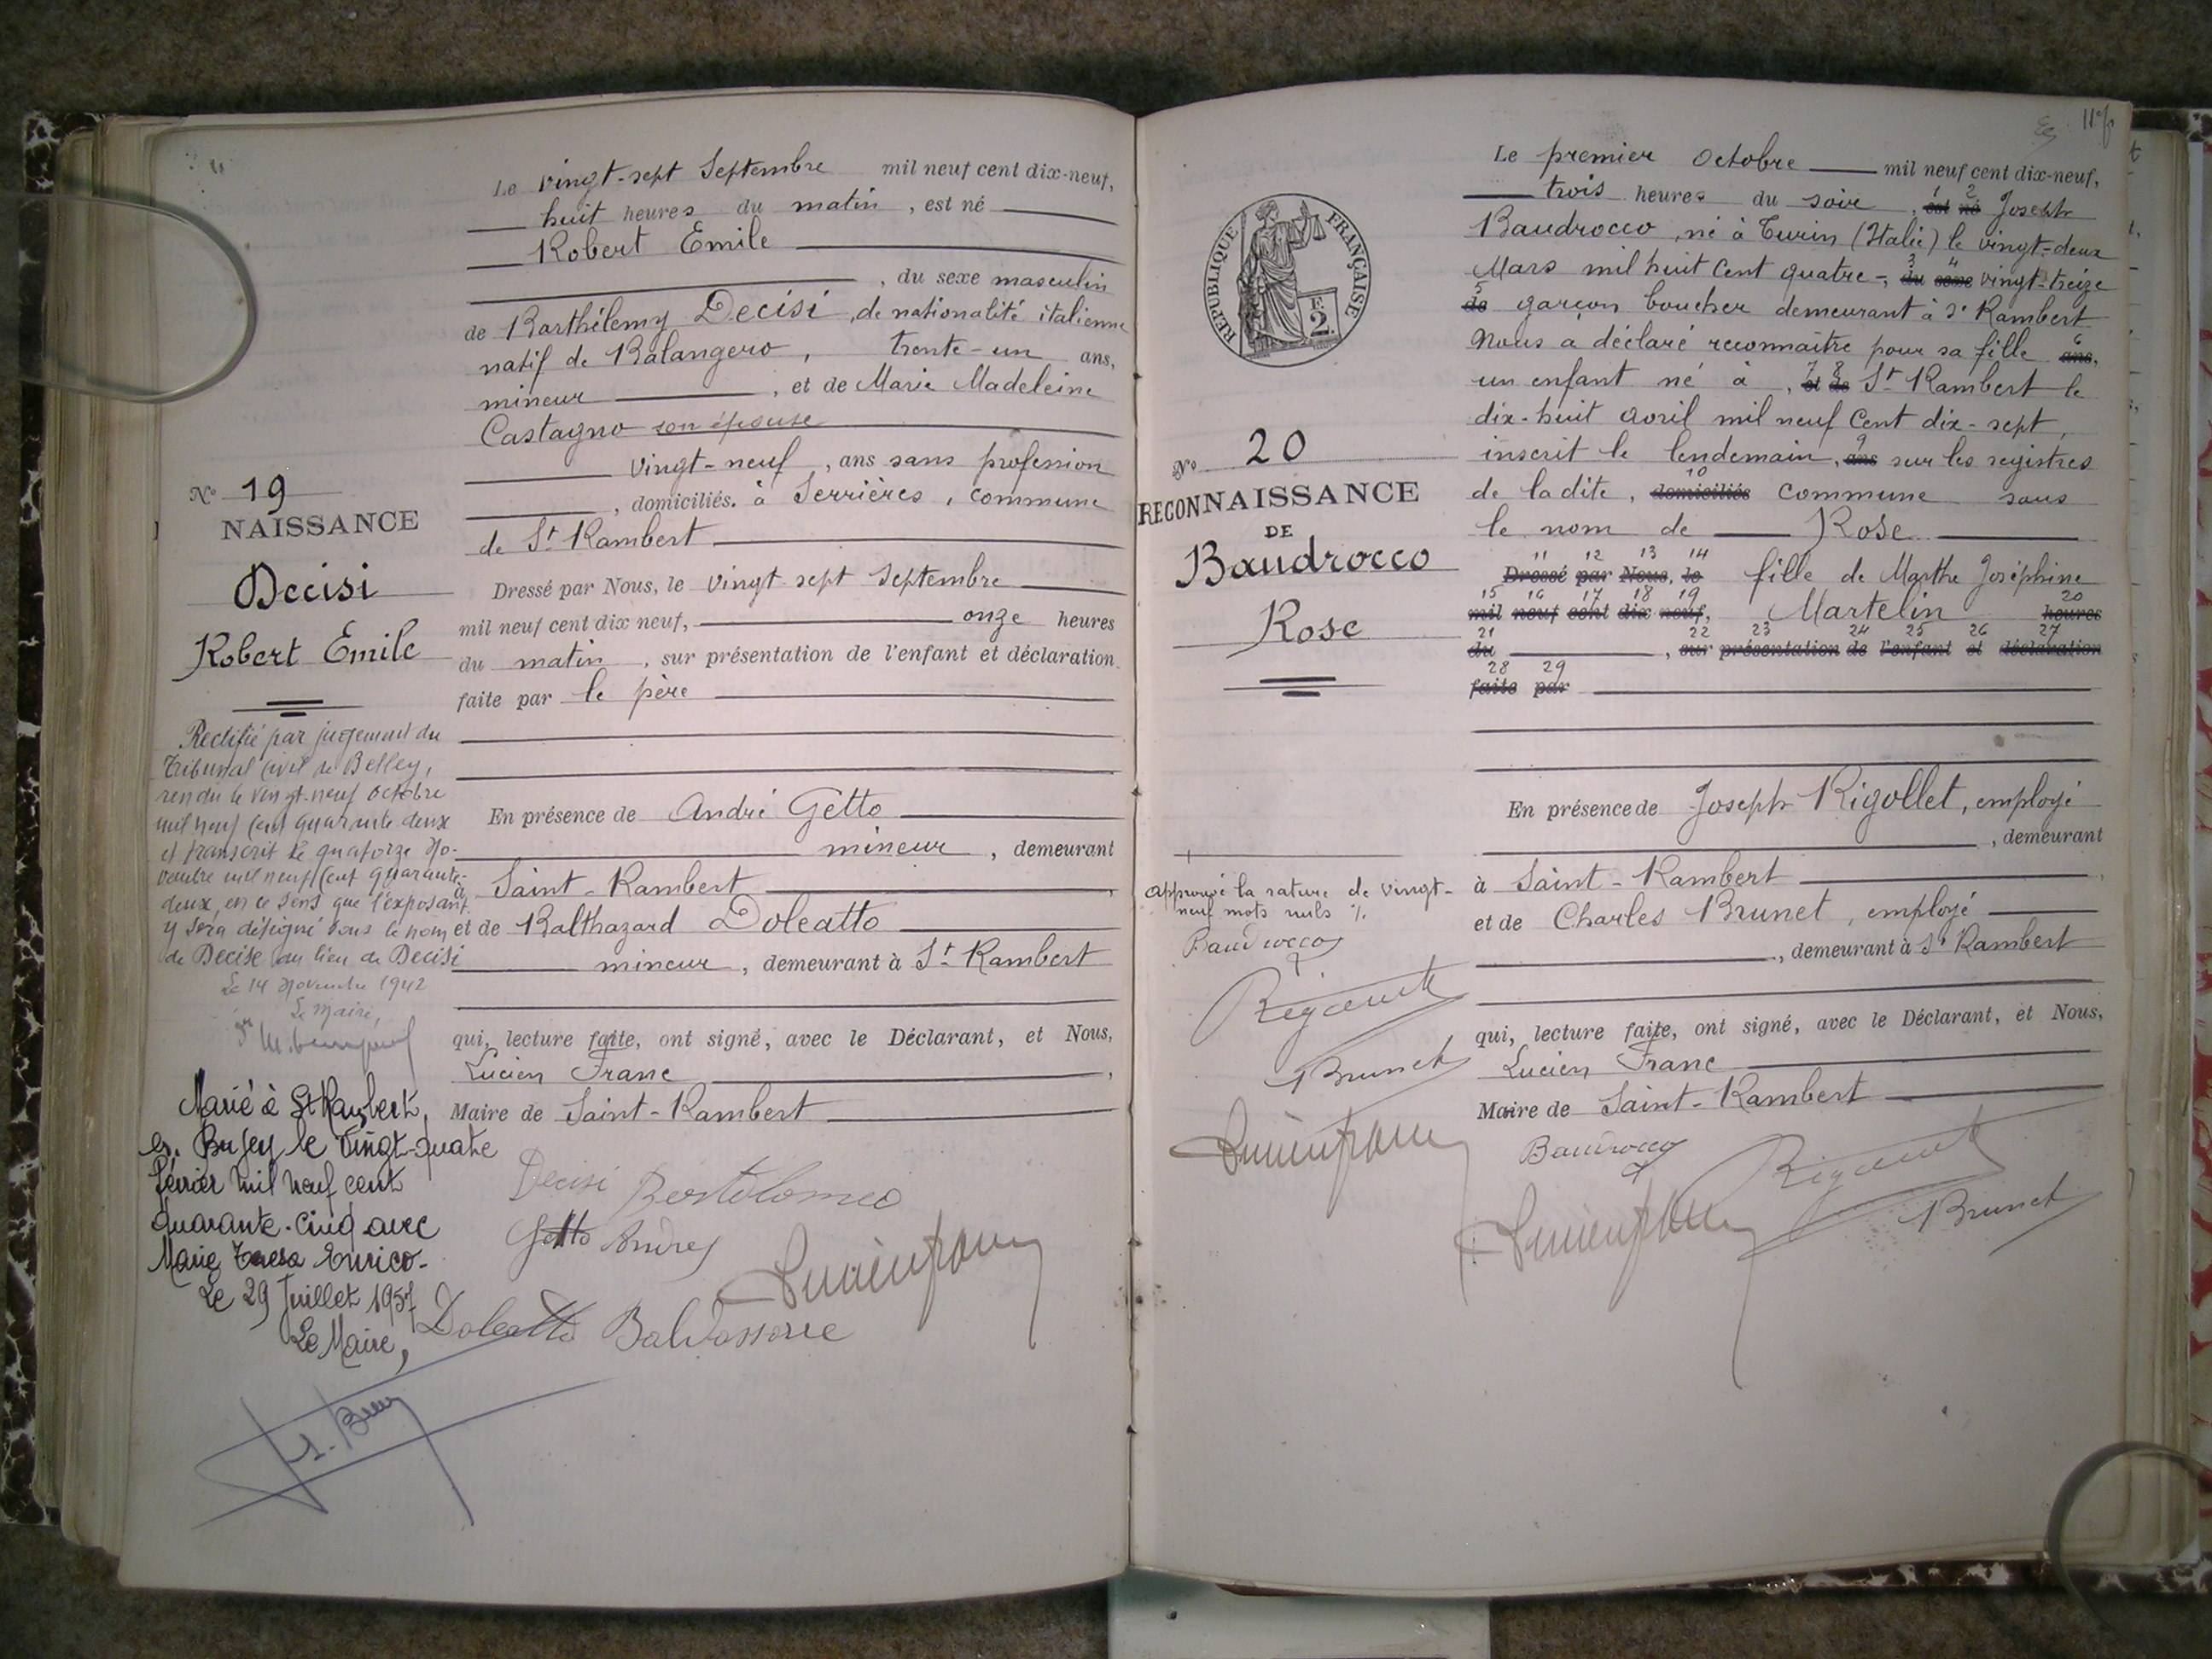 Le vingt-sept Septembre mil neuf cent dix-neuf,
huit heures du matin, est né
Robert Emile
, du sexe masculin
de Barthélemy Decisi, de nationalité italienne
natif de Balangero, trente-un ans,
mineur, et de Marie Madeleine
Castagno son épouse
vingt-neuf, ans sans profession
, domiciliés. à Serrières, commune
de St Rambert
Dressé par Nous, le vingt sept Septembre
mil neuf cent dix neuf, onze heures
du matin, sur présentation de l'enfant et déclaration
faite par le père
En présence de André Getto
mineur, demeurant
à Saint-Rambert
et de Balthazard Doleatto
mineur, demeurant à St Rambert
qui, lecture faite, ont signé, avec le Déclarant, et Nous,
Lucien Franc,
Maire de Saint-Rambert
Decisi Bertolomeo
Getto Andrey
Doleatto Baldassarre
No 19
NAISSANCE
Decisi
Robert Emile
Rectifié par jugement du
Tribunal Civil de Belley,
rendu le vingt-neuf octobre
mil neuf cent quarante deux
et transcrit le quatorze No-
vembre mil neuf cent quarante-
deux, en ce sens que l'exposant
y sera désigné sous le nom
de Decise au lieu de Decisi
Le 14 Novembre 1942
Le Maire,
Marié à St Rambert
en Bugey le vingt-quatre
février mil neuf cent
quarante-cinq avec
Marie Teresa Enrico-
Le 29 Juillet 1957
Le Maire,
11
RÉPUBLIQUE FRANÇAISE
E
2.
No 20
RECONNAISSANCE
DE
Baudrocco
Rose
approuvé la rature de vingt-
neuf mots nuls %
Baudrocco
Brunet
Le premier Octobre mil neuf cent dix-neuf,
trois heures du soir, 1 est 2 né Joseph
Baudrocco, né à Turin (Italie) le vingt-deux
Mars mil huit cent quatre-, 3 du 4 sexe vingt-treize
5 de garçon boucher demeurant à St Rambert
Nous a déclaré reconnaitre pour sa fille 6 ans,
un enfant né à, 7 et 8 de St Rambert le
dix-huit avril mil neuf cent dix-sept,
inscrit le lendemain, 9 ans sur les registres
de ladite, 10 domiciliés commune sous
le nom de Rose
11 Dressé 12 par 13 Nous, 14 le fille de Marthe Joséphine
15 mil 16 neuf 17 cent 18 dix 19 neuf, Martelin 20 heures
21 du, 22 sur 23 présentation 24 de 25 l'enfant 26 et 27 déclaration
28 faite 29 par
En présence de Joseph Rigollet, employé
, demeurant
à Saint-Rambert,
et de Charles Brunet, employé
, demeurant à St Rambert
qui, lecture faite, ont signé, avec le Déclarant, et Nous,
Lucien Franc
Maire de Saint-Rambert
Baudrocco
Brunet